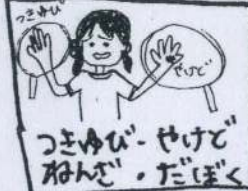 つきゆび
やけど
つきゆび-やけど
ねんざ・だぼく